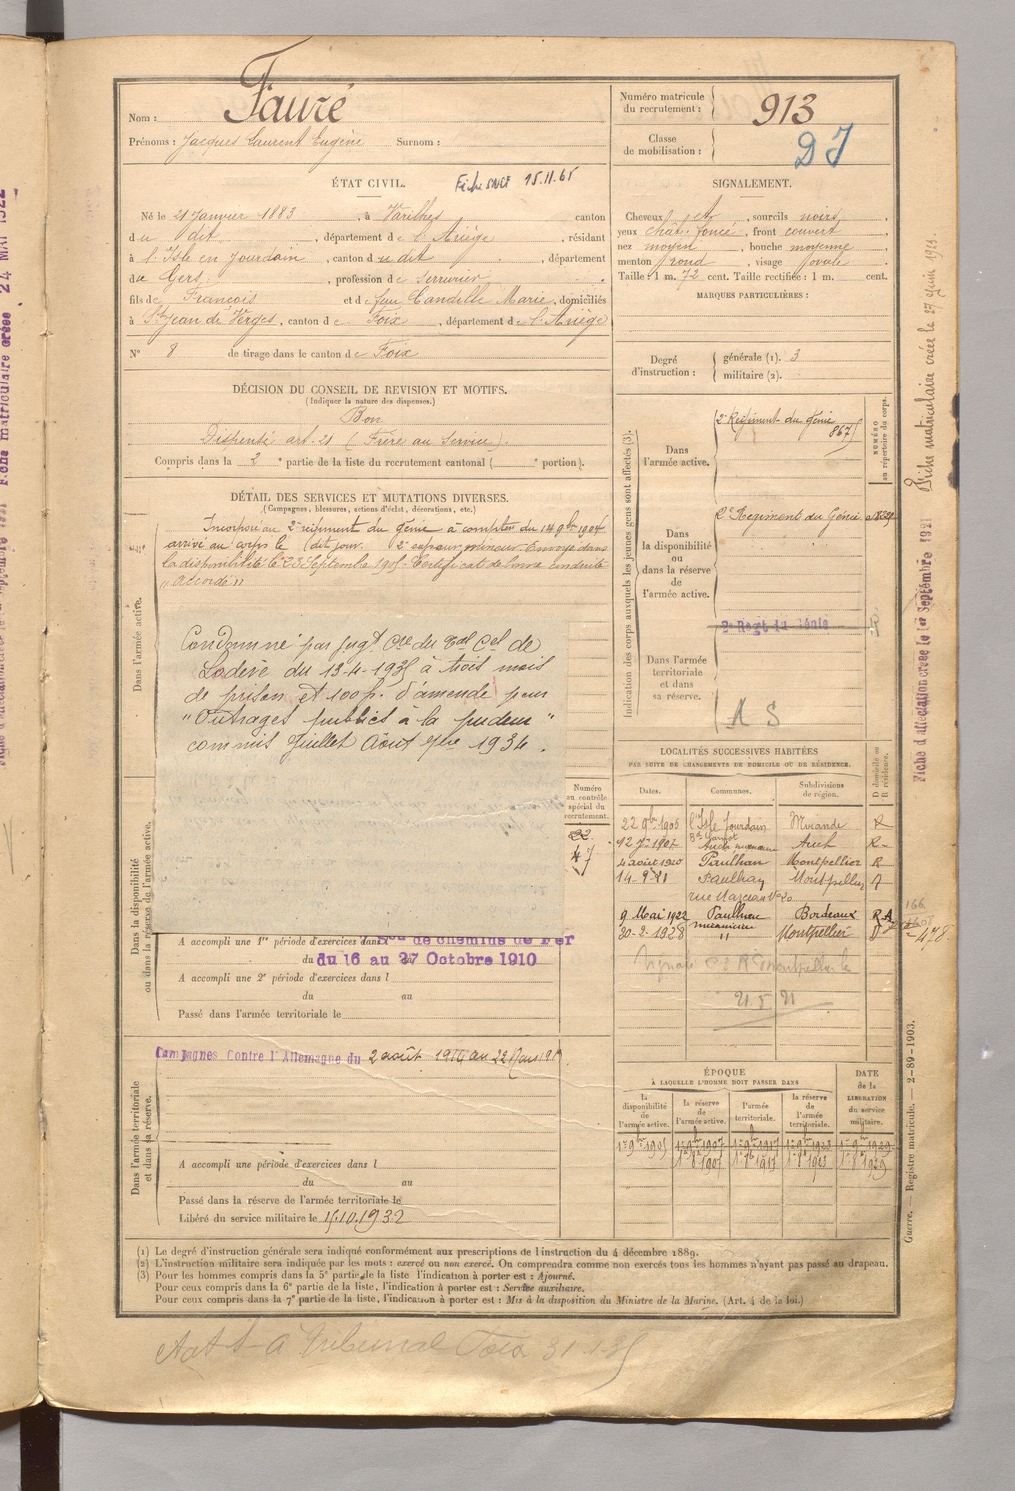 Nom : Fauré
Prénoms : Jacques Laurent Eugène Surnom :
Numéro matricule du recrutement : 913
Classe de mobilisation :
ÉTAT CIVIL.
Fiche SNCF 15.11.65
Né le 21 Janvier 1883, à Varilhes canton
du dit, département de l'Ariège, résidant
à l'Isle en Jourdain, canton du dit, département
de Gers, profession de Serrurier
fils de François et de feue Candille Marie, domiciliés
à St Jean de Verges, canton de Foix, département de l'Ariège
N° 8 de tirage dans le canton de Foix
SIGNALEMENT.
Cheveux et, sourcils noirs,
yeux chât. foncé, front couvert
nez moyen, bouche moyenne
menton rond, visage ovale
Taille : 1 m. 72 cent. Taille rectifiée : 1 m. cent.
MARQUES PARTICULIÈRES :
Degré d'instruction : générale (1). 3
militaire (2).
DÉCISION DU CONSEIL DE REVISION ET MOTIFS.
(Indiquer la nature des dispenses.)
Bon
Dispensé art. 21 (Frère au Service).
Compris dans la 2e partie de la liste du recrutement cantonal ( portion).
DÉTAIL DES SERVICES ET MUTATIONS DIVERSES.
(Campagnes, blessures, actions d'éclat, décorations, etc.)
Dans l'armée active.
Incorporé au 2e régiment du Génie à compter du 14 9bre 1904
arrivé au corps le dit jour. 2e sapeur mineur. Envoyé dans
la disponibilité le 23 Septembre 1905. Certificat de bonne conduite
"Accordé"
Condamné par jugt Cre du Tal Cel de
Lodève du 13-4-1935 à trois mois
de prison et 100 f. d'amende pour
"Outrages publics à la pudeur"
commis Juillet Août 7bre 1934.
Dans la disponibilité ou dans la réserve de l'armée active.
Numéro au contrôle spécial du recrutement.
22
47
A accompli une 1re période d'exercices dans de chemins de Fer
du 16 au 27 Octobre 1910
A accompli une 2e période d'exercices dans l
du au
Passé dans l'armée territoriale le
Dans l'armée territoriale et dans sa réserve.
Campagnes Contre l'Allemagne du 2 août 1914 au 22 Mars 191
A accompli une période d'exercices dans l
du au
Passé dans la réserve de l'armée territoriale le
Libéré du service militaire le 15.10.1932
Indication des corps auxquels les jeunes gens sont affectés (3).
NUMÉRO au répertoire du corps.
Dans l'armée active.
2e Régiment du Génie
867
Dans la disponibilité ou dans la réserve de l'armée active.
2e Régiment du Génie
2e Regt du Génie
Dans l'armée territoriale et dans sa réserve.
A S
LOCALITÉS SUCCESSIVES HABITÉES
PAR SUITE DE CHANGEMENTS DE DOMICILE OU DE RÉSIDENCE.
Dates. Communes. Subdivisions de région. D domicile ou R résidence.
22 9bre 1905 l'Isle Jourdain Mirande R
12 1907 Auch Auch R
4 août 1910 Paulhan Montpellier R
Paulhan Montpellier
9 Mai 1922 Paulhan Bordeaux R
30-2-1928 " Montpellier D
166
478
21 5 21
ÉPOQUE
À LAQUELLE L'HOMME DOIT PASSER DANS
DATE de la LIBÉRATION du service militaire.
la disponibilité de l'armée active. la réserve de l'armée active. l'armée territoriale. la réserve de l'armée territoriale.
1er 9bre 1905 1er 9bre 1907 1er 9bre 1917 1er 9bre 1923 1er 9bre 1929
1er 8bre 1907 1er 8bre 1917 1er 8bre 1923 1er 8bre 1929
(1) Le degré d'instruction générale sera indiqué conformément aux prescriptions de l'instruction du 4 décembre 1889.
(2) L'instruction militaire sera indiquée par les mots : exercé ou non exercé. On comprendra comme non exercés tous les hommes n'ayant pas passé au drapeau.
(3) Pour les hommes compris dans la 5e partie de la liste l'indication à porter est : Ajourné.
Pour ceux compris dans la 6e partie de la liste, l'indication à porter est : Service auxiliaire.
Pour ceux compris dans la 7e partie de la liste, l'indication à porter est : Mis à la disposition du Ministre de la Marine. (Art. 4 de la loi.)
Tribunal Foix 31
Fiche matriculaire créée le 27 Juin 1923.
Fiche d'affectation créée le 1er Septembre 1921
Guerre. — Registre matricule. — 2-89-1903.
Fiche matriculaire créée 24 MAI 1922